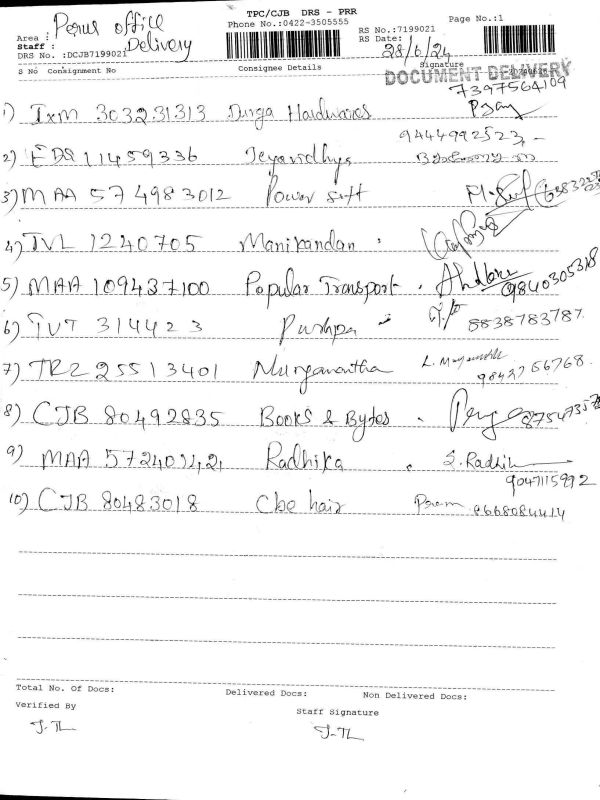 TPC/CJB DRS - PRR
Phone No.:0422-3505555
Page No.:1
Area : Perur office
Staff : Delivery
DRS No. :DCJB7199021
RS No.:7199021
RS Date: 28/6/24
S No Consignment No Consignee Details Signature
DOCUMENT DELIVERY
7397564109
1) IXM 303231313 Durga Hardwares
9444992523
2) EDS 11459336 Jeyavidhya
3) MAA 574983012 Power Soft
4) TVL 1240705 Manikandan
5) MAA 109437100 Popular Transport 9840305318
6) TVT 314423 Pushpa 8838783787
7) TRZ 25513401 Muryanantha 9842766768
8) CJB 80492835 Books & Bytes
9) MAA Radhika S. Radhik
9047115992
10) CJB 80483018 Cbe hair Prem 8668084414
Total No. Of Docs: Delivered Docs: Non Delivered Docs:
Verified By Staff Signature